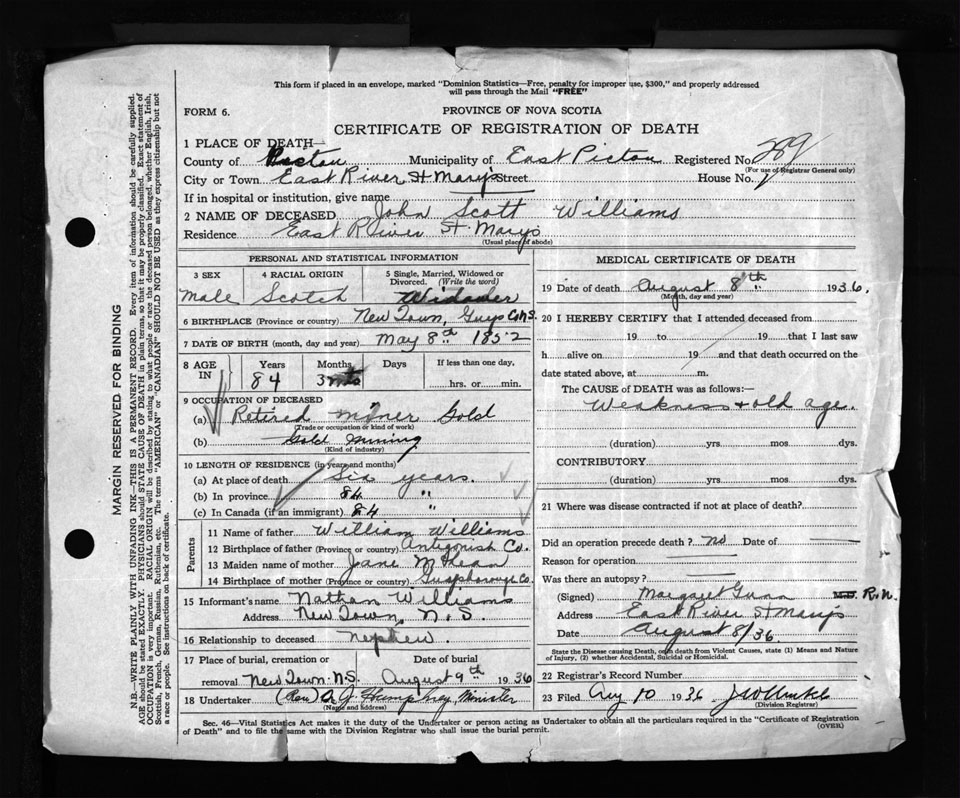 This form if placed in an envelope, marked "Dominion Statistics—Free, penalty for improper use, $300," and properly addressed
will pass through the Mail "FREE"
FORM 6.
PROVINCE OF NOVA SCOTIA
CERTIFICATE OF REGISTRATION OF DEATH
1 PLACE OF DEATH—
County of Pictou Municipality of East Pictou Registered No. 289
(For use of Registrar General only)
City or Town East River St Mary's Street House No.
If in hospital or institution, give name
2 NAME OF DECEASED John Scott Williams
Residence East River St. Marys
(Usual place of abode)
PERSONAL AND STATISTICAL INFORMATION
3 SEX 4 RACIAL ORIGIN 5 Single, Married, Widowed or Divorced. (Write the word)
Male Scotch Widower
6 BIRTHPLACE (Province or country) New Town, Guys Co N.S.
7 DATE OF BIRTH (month, day and year) May 8th 1852
8 AGE IN Years Months Days If less than one day,
84 3 mts hrs. or min.
9 OCCUPATION OF DECEASED
(a) Retired miner Gold
(Trade or occupation or kind of work)
(b) Gold mining
(Kind of industry)
10 LENGTH OF RESIDENCE (in years and months)
(a) At place of death Six years.
(b) In province 84 "
(c) In Canada (if an immigrant) 84 "
Parents
11 Name of father William Williams
12 Birthplace of father (Province or country) Antigonish Co.
13 Maiden name of mother Jane McLean
14 Birthplace of mother (Province or country) Guysborough Co
15 Informant's name Nathan Williams
Address New Town, N.S.
16 Relationship to deceased nephew.
17 Place of burial, cremation or Date of burial
removal New Town N.S. August 9th 1936
18 Undertaker (Rev) A. J. Humphrey, Minister
(Name and address)
MEDICAL CERTIFICATE OF DEATH
19 Date of death August 8th 1936.
(Month, day and year)
20 I HEREBY CERTIFY that I attended deceased from
19 to 19 that I last saw
h alive on 19 and that death occurred on the
date stated above, at m.
The CAUSE OF DEATH was as follows:—
Weakness & old age.
(duration) yrs. mos. dys.
CONTRIBUTORY
(duration) yrs. mos dys.
21 Where was disease contracted if not at place of death?
Did an operation precede death? No Date of
Reason for operation
Was there an autopsy?
(Signed) Margaret Gunn M.D. R.N.
Address East River St Mary's
Date August 8/36
State the Disease causing Death, or, death from Violent Causes, state (1) Means and Nature
of Injury, (2) whether Accidental, Suicidal or Homicidal.
22 Registrar's Record Number
23 Filed Aug 10 1936
(Division Registrar)
Sec. 46—Vital Statistics Act makes it the duty of the Undertaker or person acting as Undertaker to obtain all the particulars required in the "Certificate of Registration
of Death" and to file the same with the Division Registrar who shall issue the burial permit.
(OVER)
MARGIN RESERVED FOR BINDING
N.B.—WRITE PLAINLY WITH UNFADING INK—THIS IS A PERMANENT RECORD. Every item of information should be carefully supplied.
AGE should be stated EXACTLY. PHYSICIANS should STATE CAUSE OF DEATH in plain terms, so that it may be properly classified. Exact statement of
OCCUPATION is very important. RACIAL ORIGIN will be described by stating to what people or race the deceased person belonged, whether English, Irish,
Scottish, French, German, Russian, Ruthenian, etc. The terms "AMERICAN" or "CANADIAN" SHOULD NOT BE USED as they express citizenship but not
a race or people. See instructions on back of certificate.